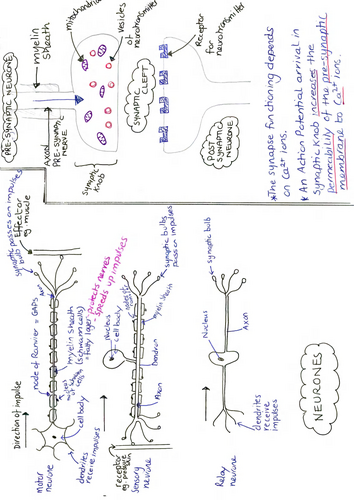 PRE-SYNAPTIC NEURONE
myelin
sheath
mitochondria
vesicles
of
neurotransmitter
Receptor
for
neurotransmitter
AXON
PRE-SYNAPTIC
NERVE
synaptic
knob
SYNAPTIC CLEFT
POST
SYNAPTIC
NEURONE
*The synapse functioning depends
on Ca2+ ions.
* An Action Potential arrival in
synaptic knob increases the
permeability of the pre-synaptic
membrane to Ca2+ ions.
NEURONES
Direction of impulse
motor
neurone
dendrites
receive impulses
cell body
node of Ranvier = GAPS
myelin sheath
(schwann cells)
= fatty layer
protects nerves
speeds up impulses
synaptic
bulb
passes on impulses
Effector
eg muscle
receptor
Sensory
neurone
nucleus
cell body
Dendron
Axon
myelin sheath
synaptic bulbs
pass on impulses
Relay
neurone
Nucleus
Axon
dendrites
receive
impulses
synaptic bulb